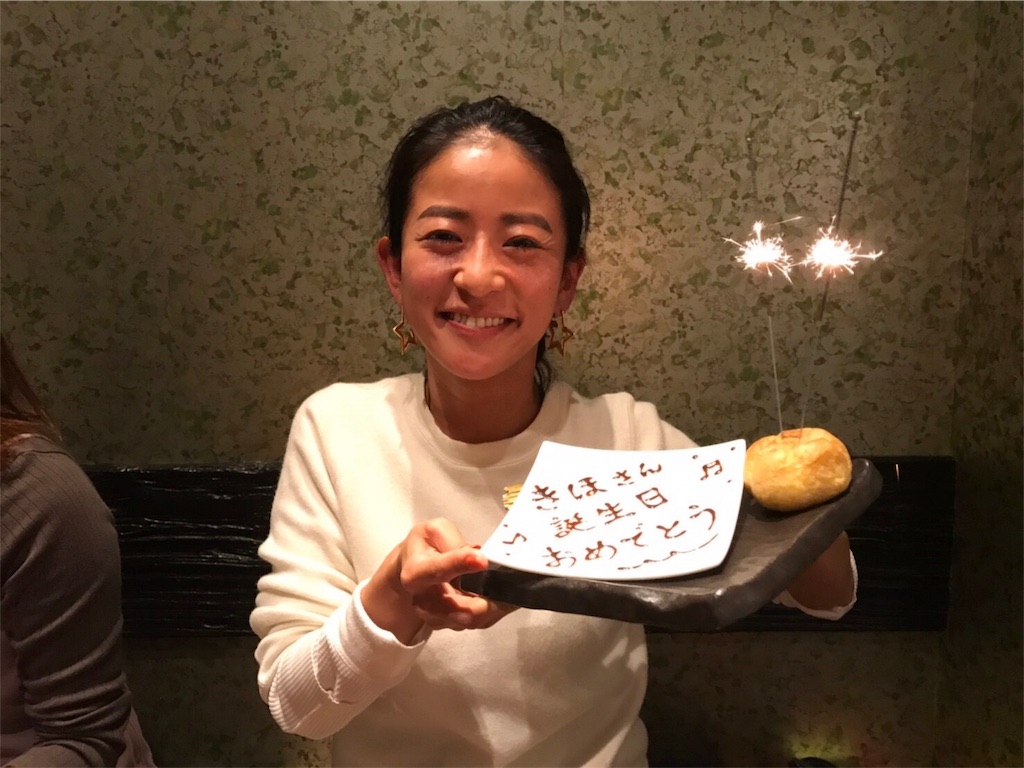 きほさん
誕生日
おめでとう